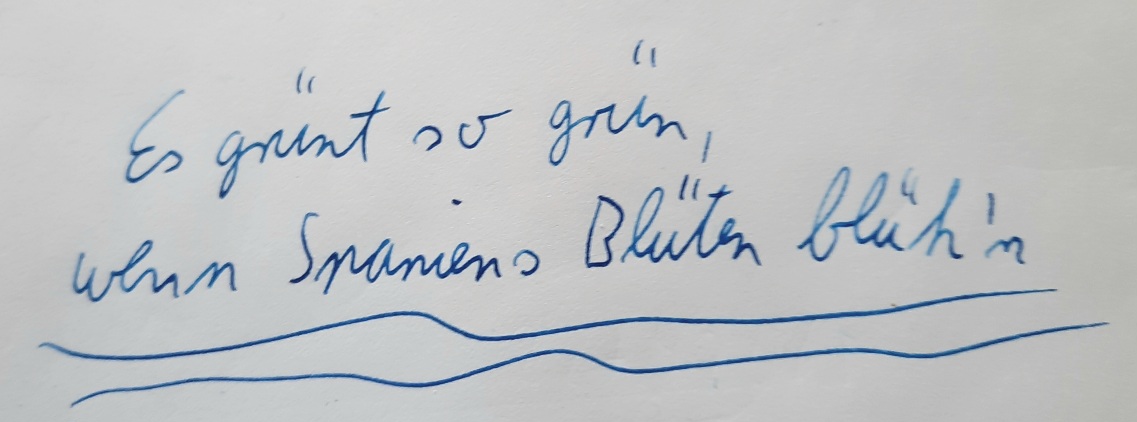 Es grünt so grün,
wenn Spaniens Blüten blüh'n